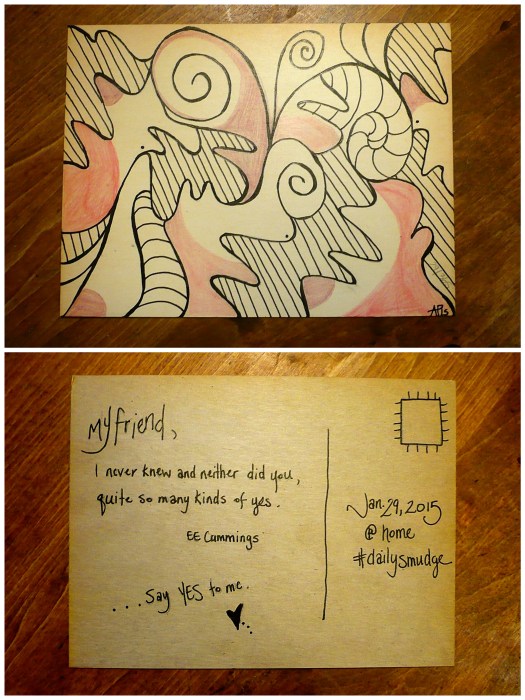 AFG
My friend,
I never knew and neither did you,
quite so many kinds of yes.
EE Cummings
...say YES to me.
Jan. 29, 2015
@ home
#dailysmudge